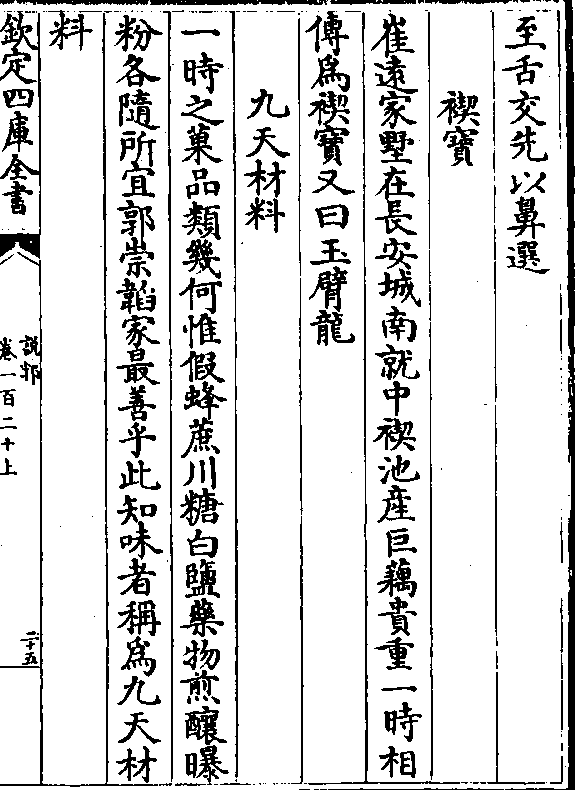 至舌交先以鼻選
禊寶
崔遠家墅在長安城南就中禊池産巨藕貴重一時相
傳爲禊寶又曰玉臂龍
九天材料
一時之菓品類幾何惟假蜂蔗川糖白鹽藥物煎釀曝
粉各隨所宜郭崇韜家最善乎此知味者稱爲九天材
料
欽定四庫全書
說郛
卷一百二十上
二十五